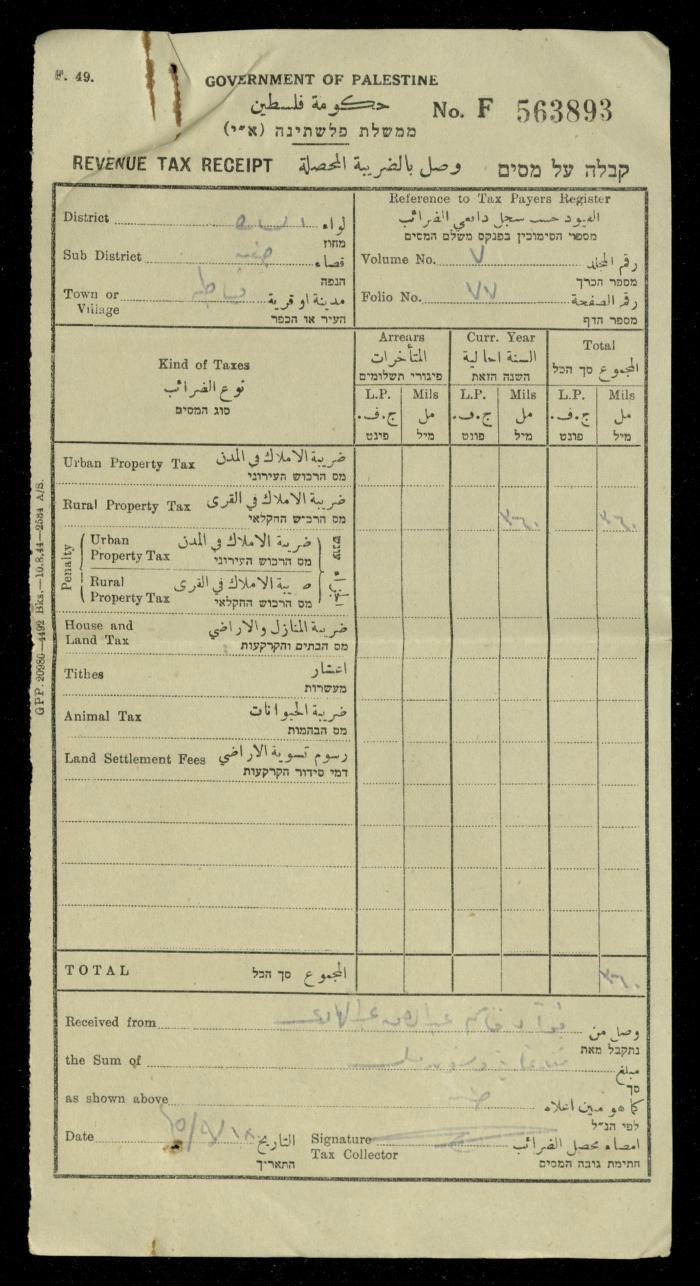 F. 49.
GOVERNMENT OF PALESTINE
حكومة فلسطين
No. F 563893
ממשלת פלשתינה (א״י)
REVENUE TAX RECEIPT وصل بالضريبة المحصلة קבלה על מסים
Reference to Tax Payers Register
القيود حسب سجل دافعي الضرائب
מספרי הסימוכין בפנקס משלם המסים
District لواء
מחוז
Sub District قضاء
הנפה
Town or Village مدينة او قرية
העיר או הכפר
Volume No. ٧ رقم المجلد
מספר הכרך
Folio No. ٧٧ رقم الصفحة
מספר הדף
Kind of Taxes
نوع الضرائب
סוג המסים
Arrears Curr. Year Total
المتأخرات السنة الحالية المجموع סך הכל
פיגורי תשלומים השנה הזאת
L.P. Mils L.P. Mils L.P. Mils
ج.ف. مل ج.ف. مل ج.ف. مل
פונט מיל פונט מיל פונט מיל
Urban Property Tax ضريبة الاملاك في المدن
מס הרכוש העירוני
Rural Property Tax ضريبة الاملاك في القرى
מס הרכיש החקלאי
٣٦٠ ٣٦٠
Penalty
Urban Property Tax ضريبة الاملاك في المدن
מס הרכוש העירוני
Rural Property Tax ضريبة الاملاك في القرى
מס הרכוש החקלאי
עונש
House and Land Tax ضريبة المنازل والاراضي
מס הבתים והקרקעות
Tithes اعشار
מעשרות
Animal Tax ضريبة الحيوانات
מס הבהמות
Land Settlement Fees رسوم تسوية الاراضي
דמי סידור הקרקעות
TOTAL المجموع סך הכל ٣٦٠
Received from وصل من
נתקבל מאת
the Sum of مبلغ
סך
as shown above كما هو مبين اعلاه
לפי הנ״ל
Date التاريخ
התאריך
Signature Tax Collector امضاء محصل الضرائب
חתימת גובה המסים
GPP. 20980—4492 Bks.—10.8.44—2534 A/S.